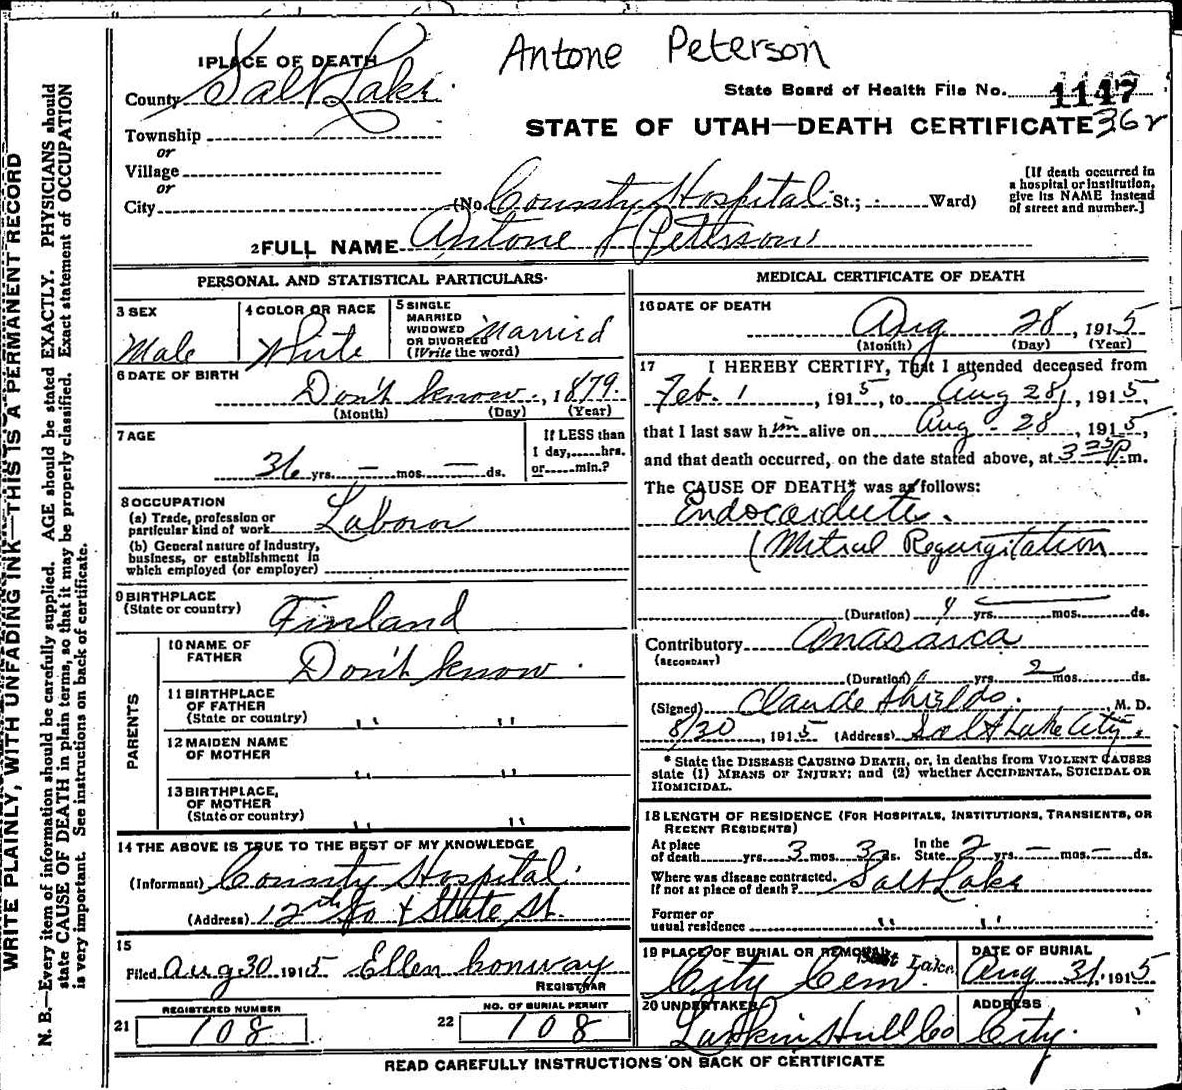 Antone Peterson
1 PLACE OF DEATH
County Salt Lake.
State Board of Health File No. 1147
STATE OF UTAH—DEATH CERTIFICATE 362
Township
or
Village
or
City (No. County Hospital St.; Ward)
[If death occurred in a hospital or institution, give its NAME instead of street and number.]
2 FULL NAME Antone J Peterson
PERSONAL AND STATISTICAL PARTICULARS
3 SEX Male
4 COLOR OR RACE White
5 SINGLE MARRIED WIDOWED OR DIVORCED (Write the word) Married
6 DATE OF BIRTH Don't know, 1879.
(Month) (Day) (Year)
7 AGE 36 yrs. — mos. — ds.
If LESS than 1 day, hrs. or min.?
8 OCCUPATION
(a) Trade, profession or particular kind of work Labor
(b) General nature of industry, business, or establishment in which employed (or employer)
9 BIRTHPLACE (State or country) Finland
PARENTS
10 NAME OF FATHER Don't know.
11 BIRTHPLACE OF FATHER (State or country) " "
12 MAIDEN NAME OF MOTHER " "
13 BIRTHPLACE, OF MOTHER (State or country) " "
14 THE ABOVE IS TRUE TO THE BEST OF MY KNOWLEDGE
(Informant) County Hospital.
(Address) 12th So & State St.
15
Filed Aug 30 1915 Ellen Conway
REGISTRAR
21 REGISTERED NUMBER 108
22 NO. OF BURIAL PERMIT 108
MEDICAL CERTIFICATE OF DEATH
16 DATE OF DEATH Aug 28, 1915
(Month) (Day) (Year)
17 I HEREBY CERTIFY, That I attended deceased from
Feb. 1, 1915, to Aug 28, 1915,
that I last saw him alive on Aug - 28, 1915,
and that death occurred, on the date stated above, at 3 P.m.
The CAUSE OF DEATH* was as follows:
Endocarditis.
(Mitral Regurgitation
(Duration) yrs. mos. ds.
Contributory Anasarca
(SECONDARY)
(Duration) yrs. 2 mos. ds.
(Signed) Claude Shields. M. D.
8/30, 1915 (Address) Salt Lake City.
* State the DISEASE CAUSING DEATH, or, in deaths from VIOLENT CAUSES
state (1) MEANS OF INJURY; and (2) whether ACCIDENTAL, SUICIDAL OR
HOMICIDAL.
18 LENGTH OF RESIDENCE (FOR HOSPITALS, INSTITUTIONS, TRANSIENTS, OR
RECENT RESIDENTS)
At place of death yrs. 3 mos. 3 ds. In the State 2 yrs. — mos. — ds.
Where was disease contracted, If not at place of death? Salt Lake
Former or usual residence " "
19 PLACE OF BURIAL OR REMOVAL City Cem. Salt Lake
DATE OF BURIAL Aug 31, 1915
20 UNDERTAKER Larkin Hull Co
ADDRESS City.
READ CAREFULLY INSTRUCTIONS ON BACK OF CERTIFICATE
WRITE PLAINLY, WITH UNFADING INK—THIS IS A PERMANENT RECORD
N. B.—Every item of information should be carefully supplied. AGE should be stated EXACTLY. PHYSICIANS should
state CAUSE OF DEATH in plain terms, so that it may be properly classified. Exact statement of OCCUPATION
is very important. See instructions on back of certificate.